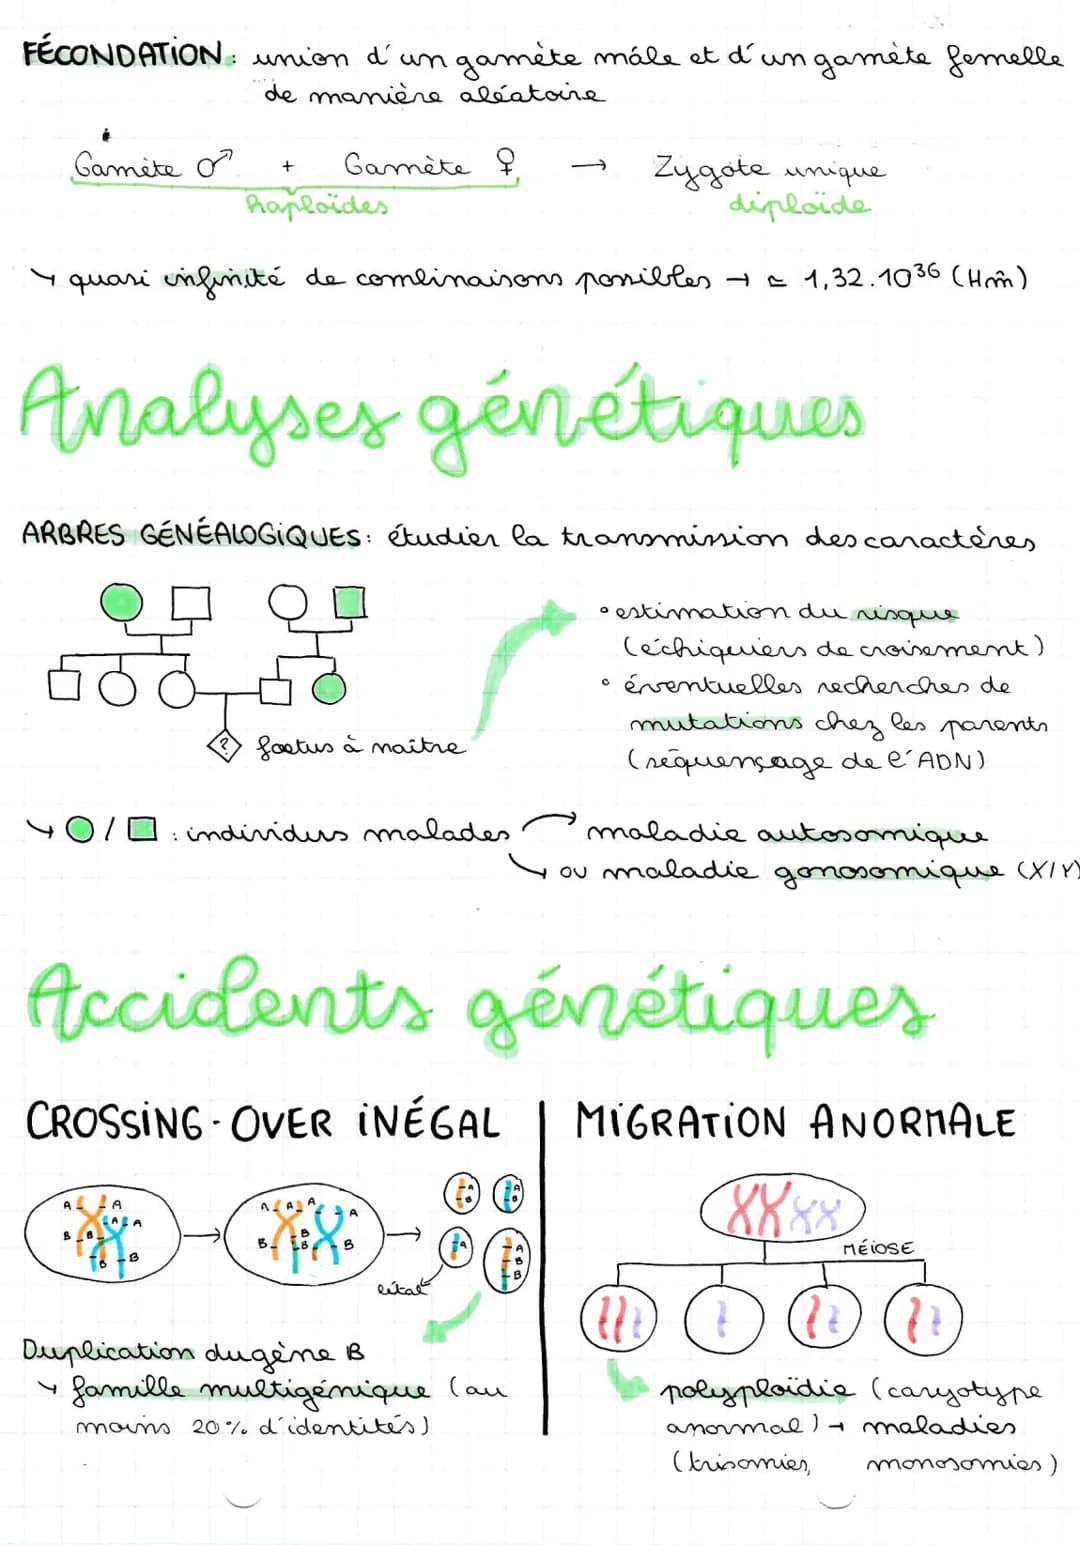 FÉCONDATION : union d'un gamète mâle et d'un gamète femelle
de manière aléatoire
Gamète ♂ + Gamète ♀ → Zygote unique
haploïdes diploïde
↳ quasi infinité de combinaisons possibles → ≃ 1,32.10³⁶ (Hm̂)
Analyses génétiques
ARBRES GÉNÉALOGIQUES : étudier la transmission des caractères
° estimation du risque
(échiquiers de croisement)
° éventuelles recherches de
mutations chez les parents
(séquençage de l'ADN)
? foetus à naître
↳ ○ / □ : individus malades → maladie autosomique
↳ ou maladie gonosomique (X/Y)
Accidents génétiques
CROSSING-OVER INÉGAL
MIGRATION ANORMALE
A A A A
B B B B
A A A A
B B B B
A B
A B
A
A B B
létal
MÉIOSE
Duplication du gène B
↳ famille multigénique (au
moins 20% d'identités)
polyploïdie (caryotype
anormal) → maladies
(trisomies, monosomies)